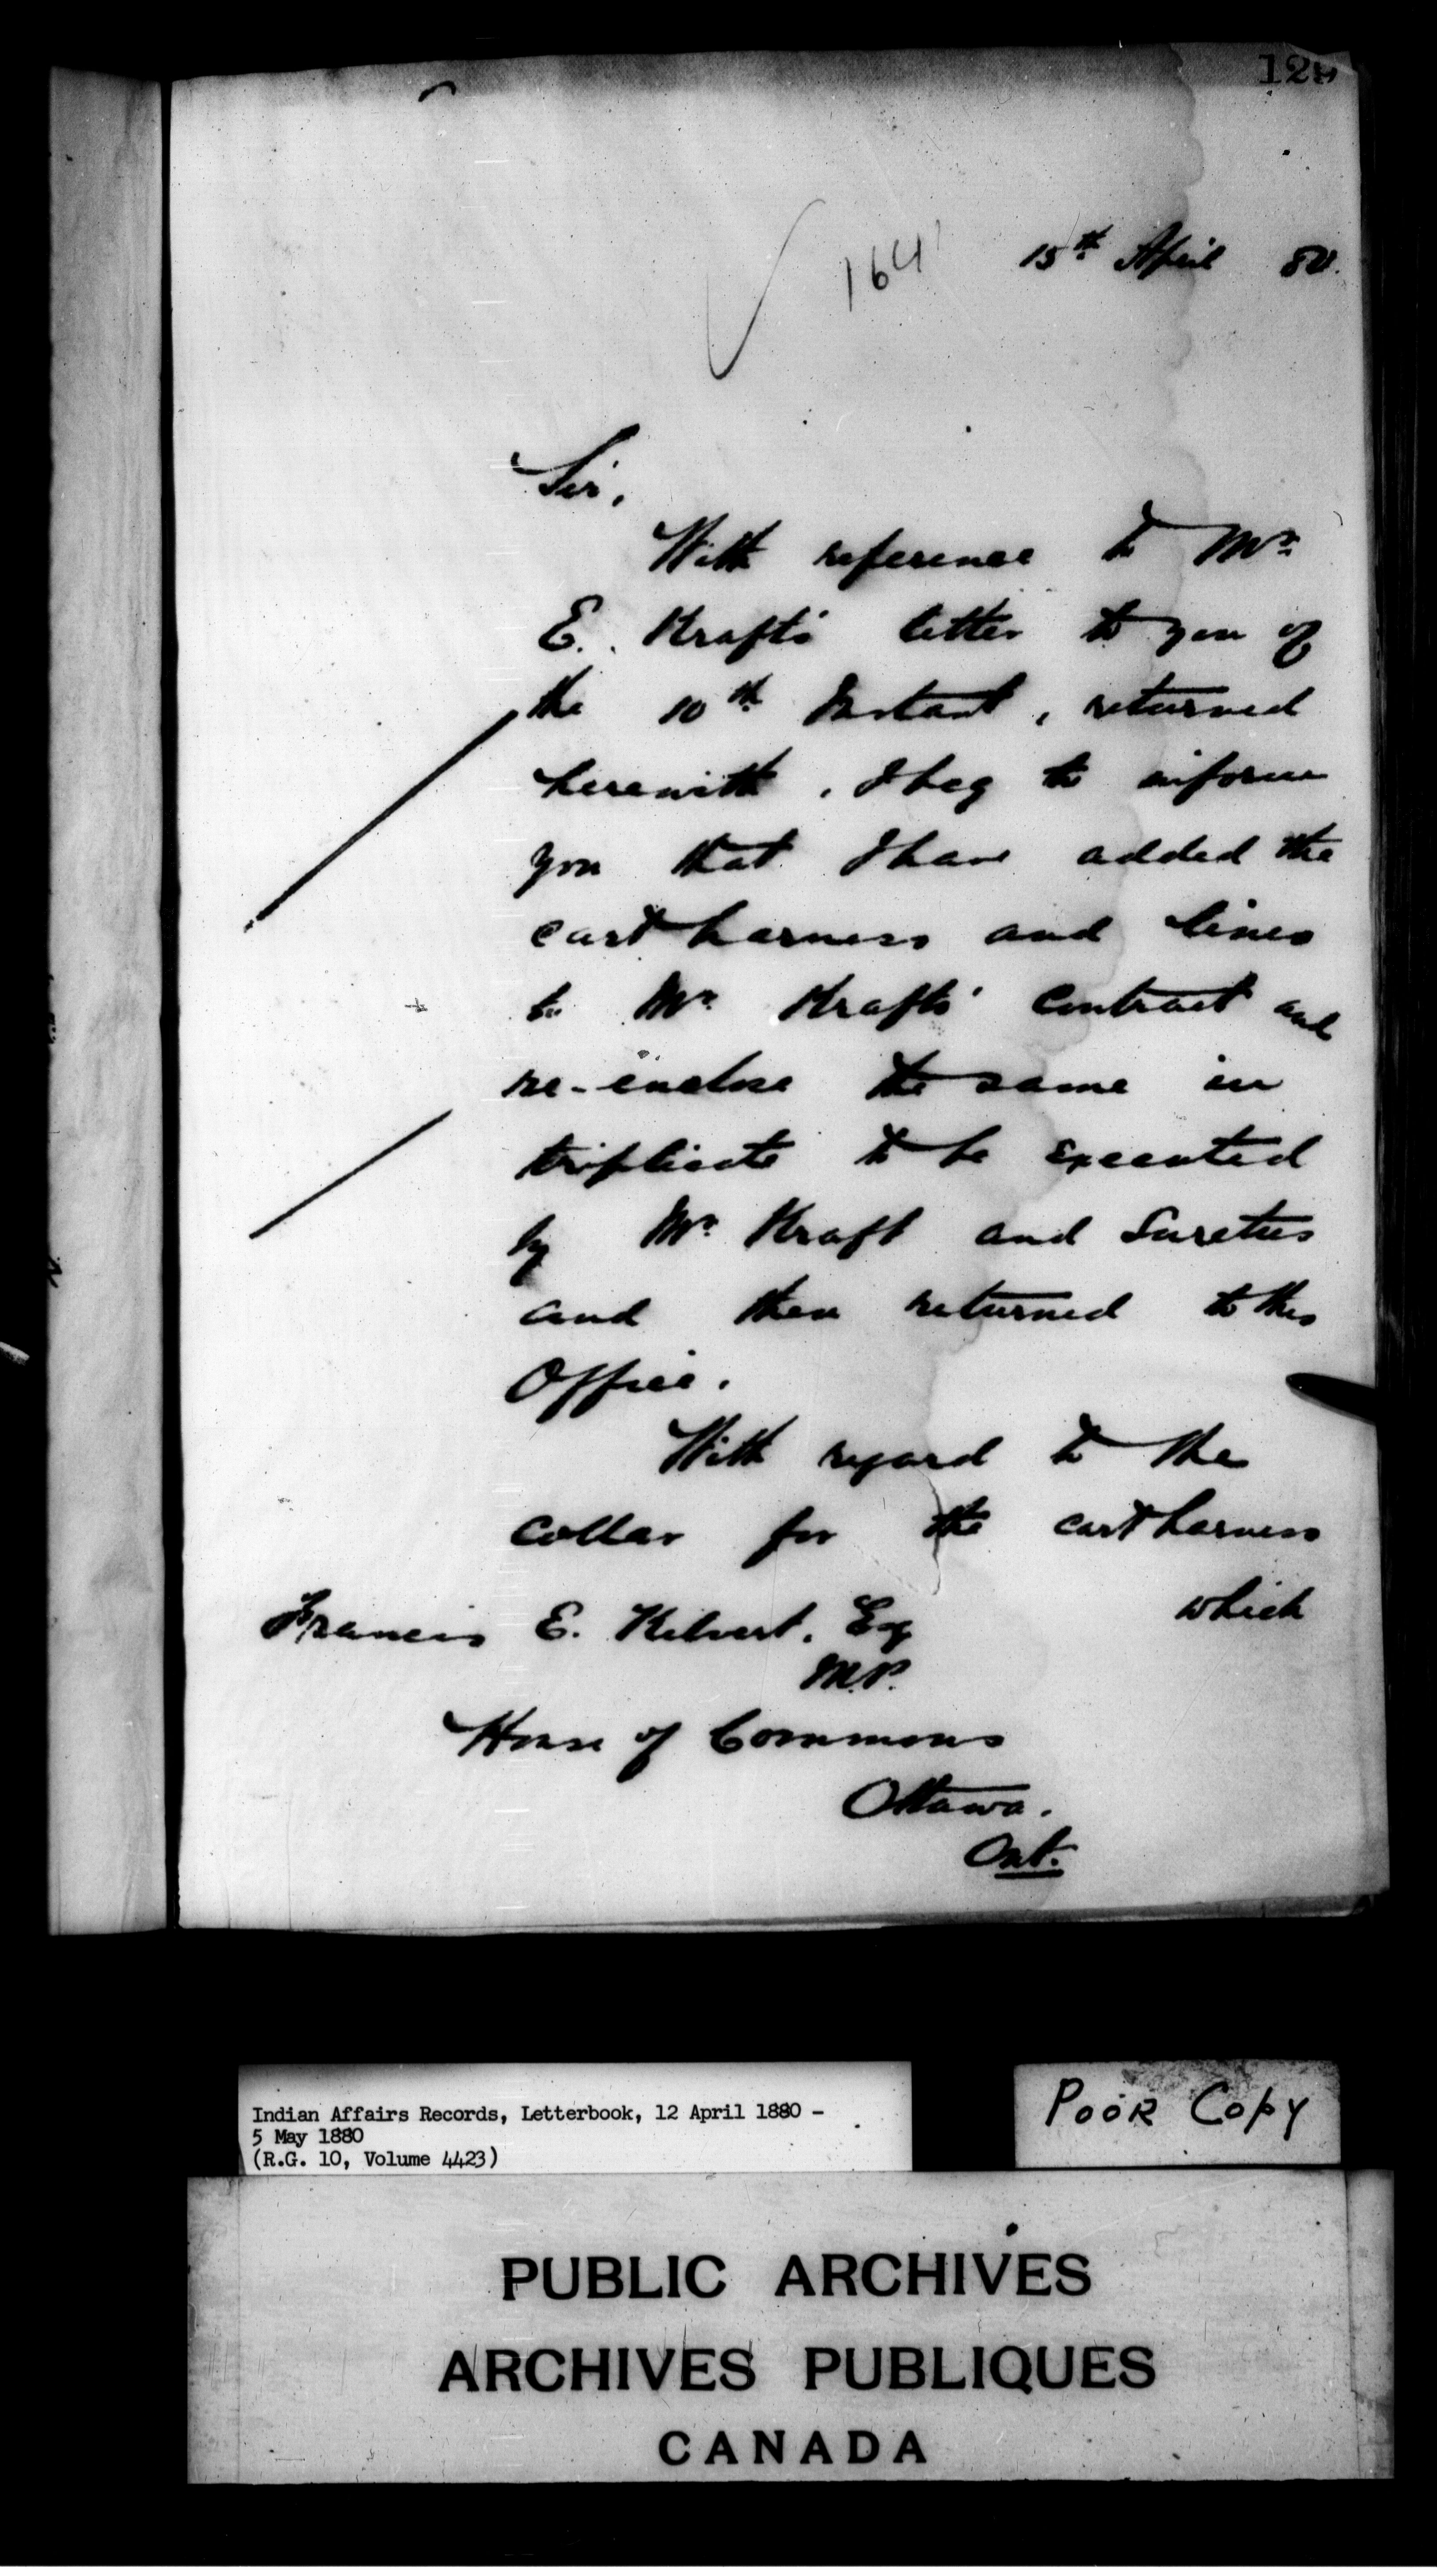 164
15th April 80.
Sir,
With reference to Mr
E. Kraft's letter to you of
the 10th Instant, returned
herewith, I beg to inform
you that I have added the
cart harness and lines
to Mr Kraft's Contract and
re-enclose the same in
triplicate to be executed
by Mr Kraft and Sureties
and then returned to this
Office.
With regard to the
collar for the cart harness
which
Francis E. Kilvert, Esq
M.P.
House of Commons
Ottawa.
Ont.
Indian Affairs Records, Letterbook, 12 April 1880 -
5 May 1880
(R.G. 10, Volume 4423)
POOR COPY
PUBLIC ARCHIVES
ARCHIVES PUBLIQUES
CANADA